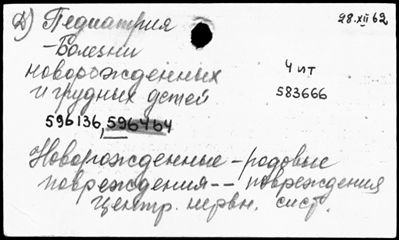 Д) Педиатрия
28.XII 62
-Болезни
новорожденных
и грудных детей
4 ит
583666
596136, 596464
Новорожденные - родовые
повреждения -- повреждения
центр. нервн. сист.